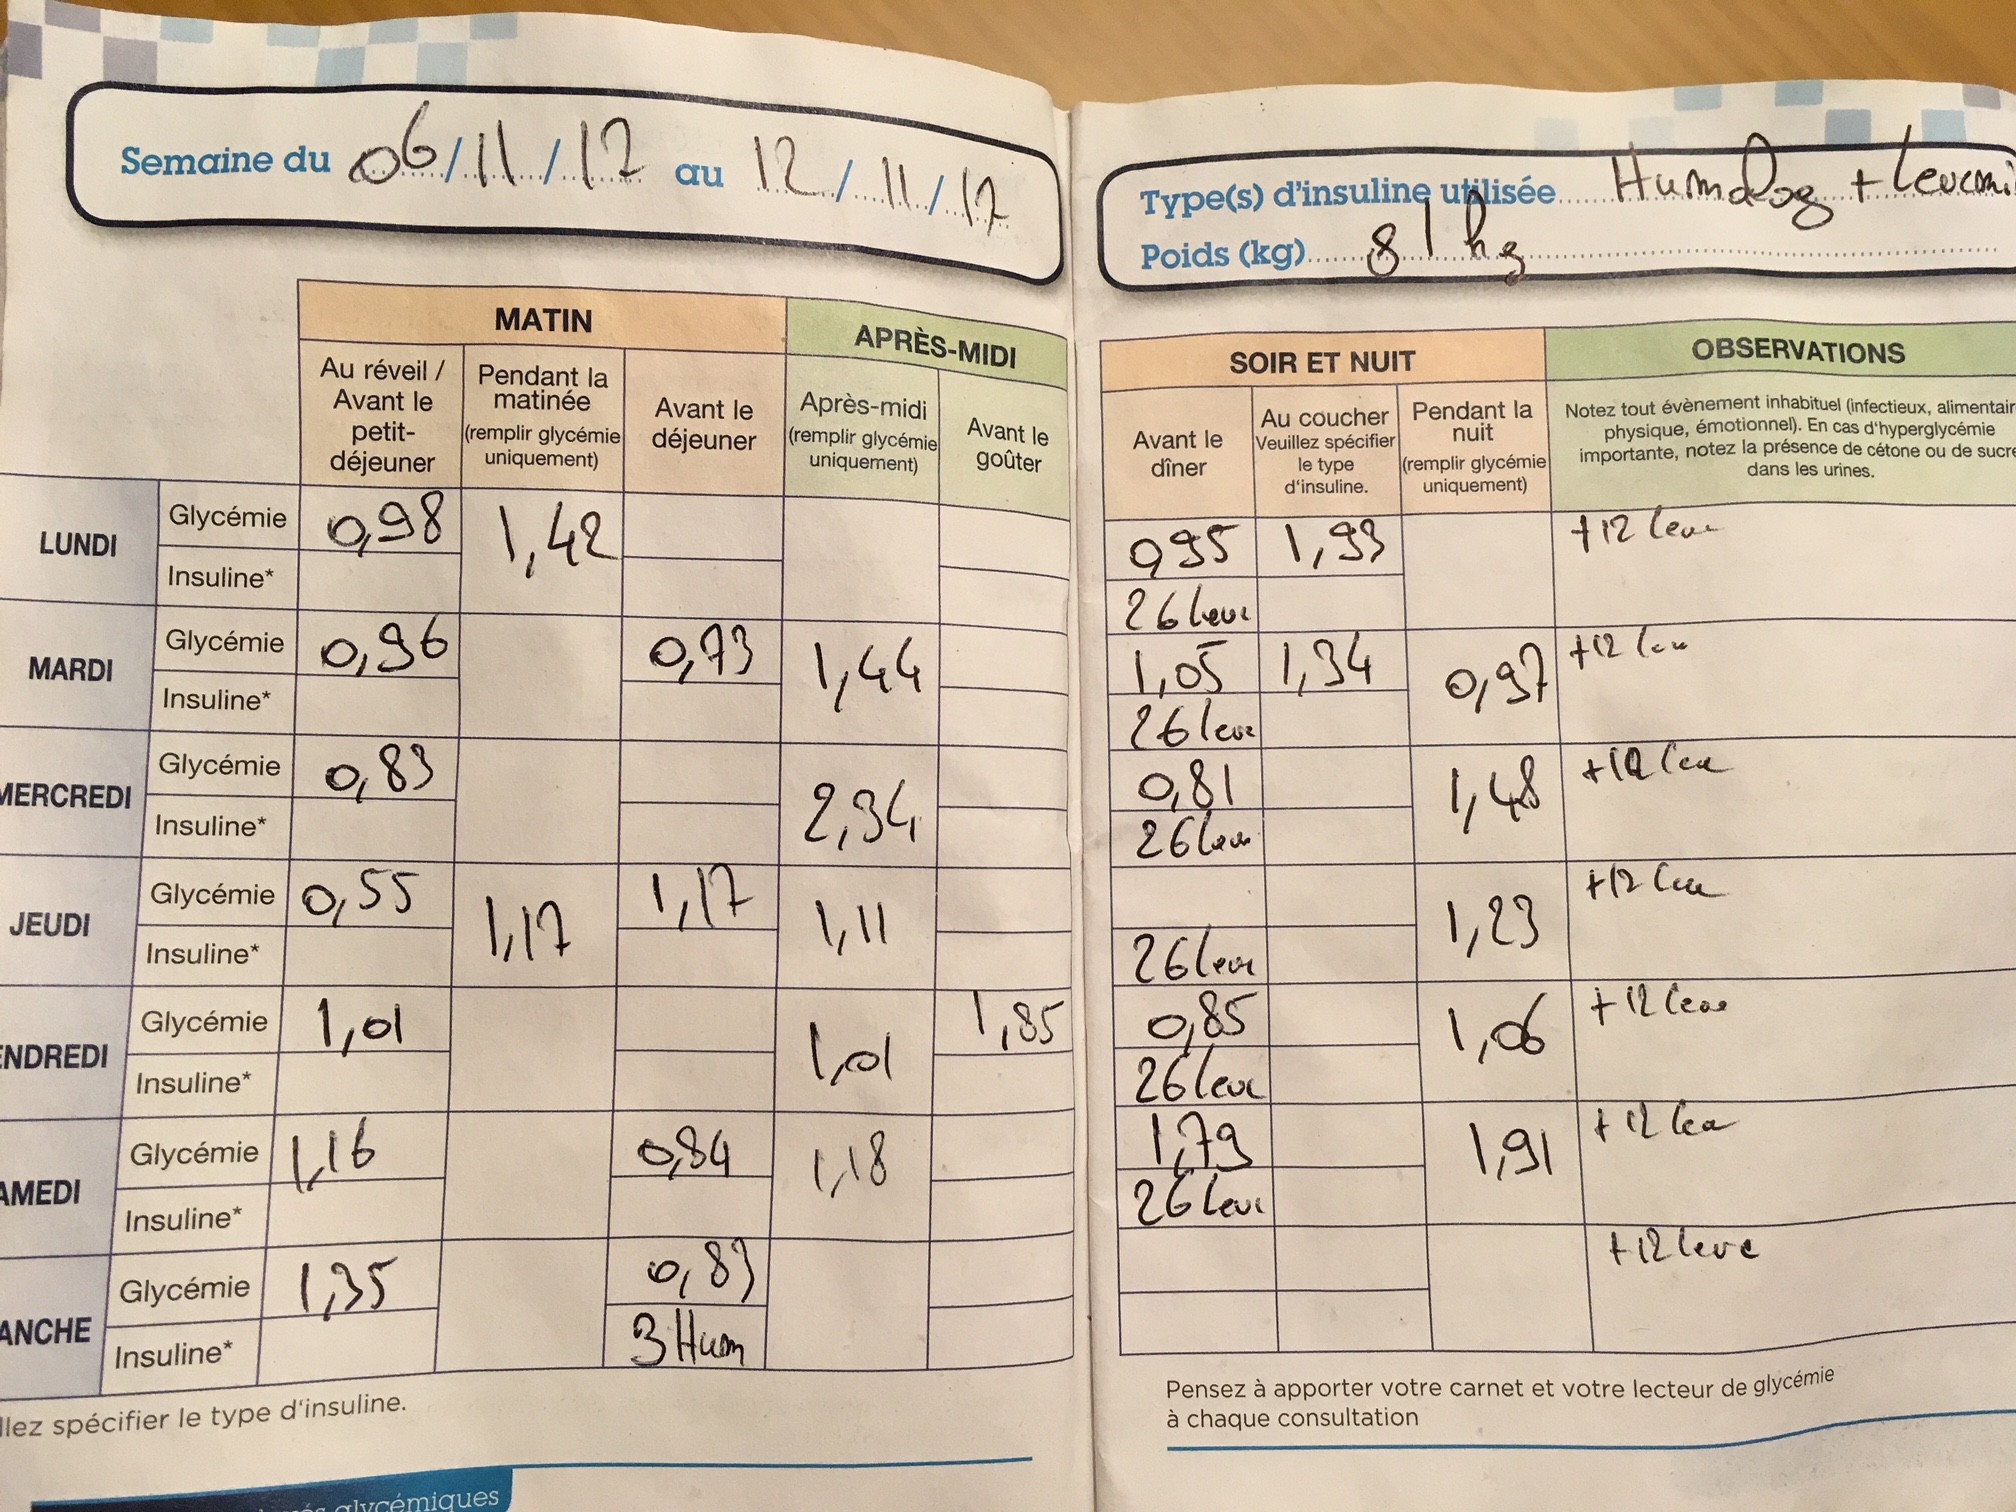 Semaine du 06/11/17 au 12/11/17
MATIN
APRÈS-MIDI
Au réveil / Avant le petit-déjeuner
Pendant la matinée (remplir glycémie uniquement)
Avant le déjeuner
Après-midi (remplir glycémie uniquement)
Avant le goûter
LUNDI
Glycémie 0,98 1,42
Insuline*
MARDI
Glycémie 0,96 0,73 1,44
Insuline*
MERCREDI
Glycémie 0,83 2,34
Insuline*
JEUDI
Glycémie 0,55 1,17 1,17 1,11
Insuline*
ENDREDI
Glycémie 1,01 1,01 1,85
Insuline*
AMEDI
Glycémie 1,16 0,84 1,18
Insuline*
ANCHE
Glycémie 1,35 0,83
Insuline* 3 Hum
llez spécifier le type d'insuline.
glycémiques
Type(s) d'insuline utilisée Humalog + Levemi
Poids (kg) 81 kg
SOIR ET NUIT
OBSERVATIONS
Avant le dîner
Au coucher Veuillez spécifier le type d'insuline.
Pendant la nuit (remplir glycémie uniquement)
Notez tout évènement inhabituel (infectieux, alimentair
physique, émotionnel). En cas d'hyperglycémie
importante, notez la présence de cétone ou de sucre
dans les urines.
0,95 1,93 +12 leve
26 leve
1,05 1,34 0,97 +12 lev
26 leve
0,81 1,48 +12 lev
26 leve
1,23 +12 lev
26 leve
0,85 1,06 +12 leve
26 leve
1,79 1,91 +12 lev
26 leve
+12 leve
Pensez à apporter votre carnet et votre lecteur de glycémie
à chaque consultation